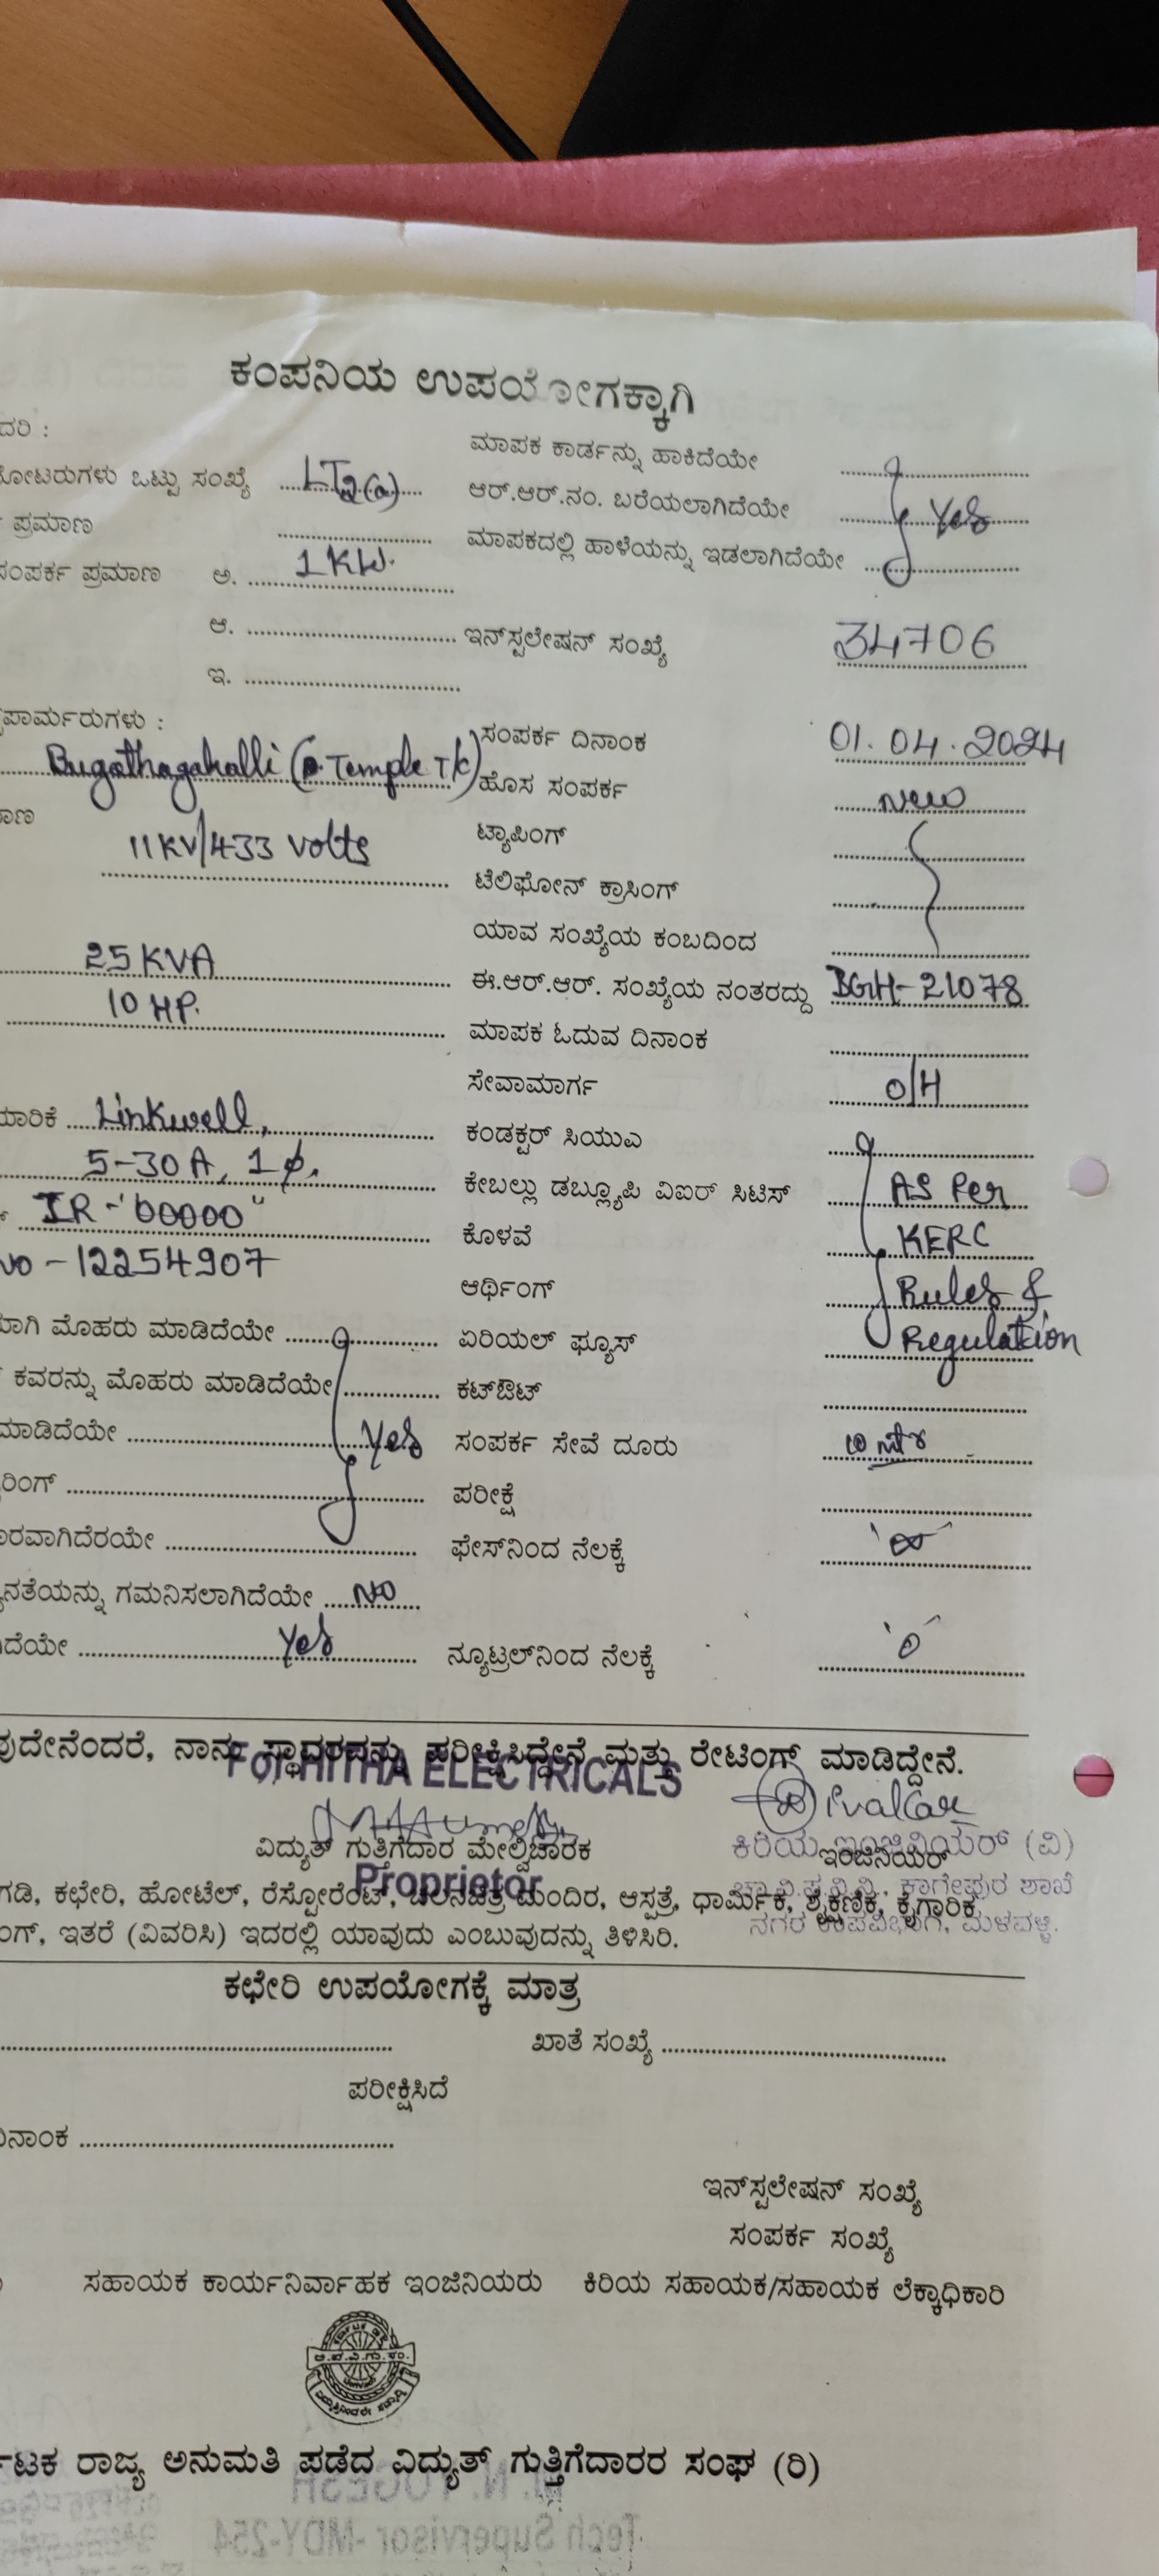 ಕಂಪನಿಯ ಉಪಯೋಗಕ್ಕಾಗಿ
ದರಿ :
ಮಾಪಕ ಕಾರ್ಡನ್ನು ಹಾಕಿದೆಯೇ
ೋಟರುಗಳು ಒಟ್ಟು ಸಂಖ್ಯೆ LT2(a)
ಆರ್.ಆರ್.ನಂ. ಬರೆಯಲಾಗಿದೆಯೇ Yes
ಪ್ರಮಾಣ
ಮಾಪಕದಲ್ಲಿ ಹಾಳೆಯನ್ನು ಇಡಲಾಗಿದೆಯೇ
ಸಂಪರ್ಕ ಪ್ರಮಾಣ ಅ. 1KW.
ಆ. ಇನ್‌ಸ್ಟಲೇಷನ್ ಸಂಖ್ಯೆ 34706
ಇ.
ಪಾರ್ಮರುಗಳು :
ಸಂಪರ್ಕ ದಿನಾಂಕ 01.04.2024
Bugathagahalli ( Temple T/C)
ಹೊಸ ಸಂಪರ್ಕ New
ಾಣ 11KV/433 Volts
ಟ್ಯಾಪಿಂಗ್
ಟೆಲಿಫೋನ್ ಕ್ರಾಸಿಂಗ್
ಯಾವ ಸಂಖ್ಯೆಯ ಕಂಬದಿಂದ
25 KVA ಈ.ಆರ್.ಆರ್. ಸಂಖ್ಯೆಯ ನಂತರದ್ದು BGH-21078
10 HP. ಮಾಪಕ ಓದುವ ದಿನಾಂಕ
ಸೇವಾಮಾರ್ಗ O/H
ಯಾರಿಕೆ Linkwell, ಕಂಡಕ್ಟರ್ ಸಿಯುಎ
5-30 A, 1ϕ. ಕೇಬಲ್ಲು ಡಬ್ಲ್ಯೂಪಿ ವಿಐರ್ ಸಿಟಿಸ್ AS Per
IR-"00000" ಕೊಳವೆ KERC
NO - 12254907 ಆರ್ಥಿಂಗ್ Rules &
ಾಗಿ ಮೊಹರು ಮಾಡಿದೆಯೇ ಏರಿಯಲ್ ಫ್ಯೂಸ್ Regulation
ಕವರನ್ನು ಮೊಹರು ಮಾಡಿದೆಯೇ ಕಟ್‌ಔಟ್
ಮಾಡಿದೆಯೇ Yes ಸಂಪರ್ಕ ಸೇವೆ ದೂರು 10 mtr
ರಿಂಗ್ ಪರೀಕ್ಷೆ
ಾರವಾಗಿದೆರಯೇ ಫೇಸ್‌ನಿಂದ ನೆಲಕ್ಕೆ
ನತೆಯನ್ನು ಗಮನಿಸಲಾಗಿದೆಯೇ NO
ದೆಯೇ Yes ನ್ಯೂಟ್ರಲ್‌ನಿಂದ ನೆಲಕ್ಕೆ '0'
ುದೇನೆಂದರೆ, ನಾನು ಸ್ಥಾವರವನ್ನು ಪರೀಕ್ಷಿಸಿದ್ದೇನೆ ಮತ್ತು ರೇಟಿಂಗ್ ಮಾಡಿದ್ದೇನೆ.
For HITHA ELECTRICALS
ವಿದ್ಯುತ್ ಗುತ್ತಿಗೆದಾರ ಮೇಲ್ವಿಚಾರಕ ಇಂಜಿನಿಯರ್
ಕಿರಿಯ ಇಂಜಿನಿಯರ್ (ವಿ)
Proprietor
ಚಾ.ವಿ.ಸ.ನಿ.ನಿ., ಕಾಗೇಪುರ ಶಾಖೆ
ಗಡಿ, ಕಛೇರಿ, ಹೋಟೆಲ್, ರೆಸ್ಟೋರೆಂಟ್, ಚಲನಚಿತ್ರ ಮಂದಿರ, ಆಸ್ಪತ್ರೆ, ಧಾರ್ಮಿಕ, ಶೈಕ್ಷಣಿಕ, ಕೈಗಾರಿಕ
ನಗರ ಉಪವಿಭಾಗ, ಮಳವಳ್ಳಿ.
ಂಗ್, ಇತರೆ (ವಿವರಿಸಿ) ಇದರಲ್ಲಿ ಯಾವುದು ಎಂಬುವುದನ್ನು ತಿಳಿಸಿರಿ.
ಕಛೇರಿ ಉಪಯೋಗಕ್ಕೆ ಮಾತ್ರ
ಖಾತೆ ಸಂಖ್ಯೆ
ಪರೀಕ್ಷಿಸಿದೆ
ದಿನಾಂಕ
ಇನ್‌ಸ್ಟಲೇಷನ್ ಸಂಖ್ಯೆ
ಸಂಪರ್ಕ ಸಂಖ್ಯೆ
ಸಹಾಯಕ ಕಾರ್ಯನಿರ್ವಾಹಕ ಇಂಜಿನಿಯರು ಕಿರಿಯ ಸಹಾಯಕ/ಸಹಾಯಕ ಲೆಕ್ಕಾಧಿಕಾರಿ
ರ್ಟಕ ರಾಜ್ಯ ಅನುಮತಿ ಪಡೆದ ವಿದ್ಯುತ್ ಗುತ್ತಿಗೆದಾರರ ಸಂಘ (ರಿ)